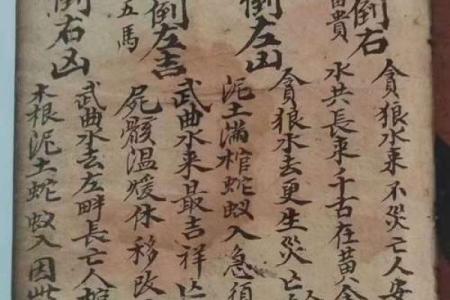 倒右
貪狼水来不災亡人安
貴
水共長来千古在黃金
倒左凶
貪狼水去更生災亡
泥土滿棺蛇蚁入急須
倒左吉
武曲水来最吉祥亡
五馬
屍骸温煖休移改
倒右凶
武曲水去左畔長亡人棺
木根泥土蛇蚁入因此